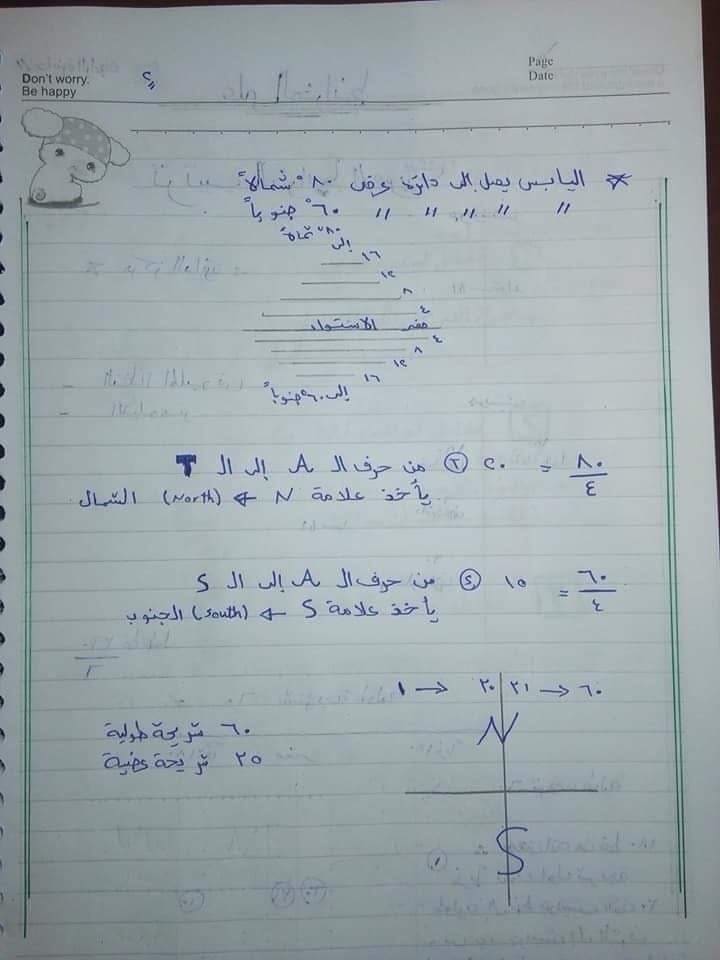 Page
Date
Don't worry.
Be happy
علم الخرائط
* اليابس يصل إلى دائرة عرض ٨٠° شمالاً
〃 〃 〃 〃 〃 ٦٠° جنوباً
٨٠° شمالاً
إلى
١٦
١٢
٨
٤
صفر الاستواء
٤
٨
١٢
١٦
إلى ٦٠° جنوباً
٨٠/٤ = ٢٠ ② من حرف ال A إلى ال T
يأخذ علامة N ← (North) الشمال
٦٠/٤ = ١٥ ④ من حرف ال A إلى ال S
يأخذ علامة S ← (South) الجنوب
١ → ٣٠ ٣١ → ٦٠
N
٦٠ شريحة طولية
٣٥ شريحة عرضية
S